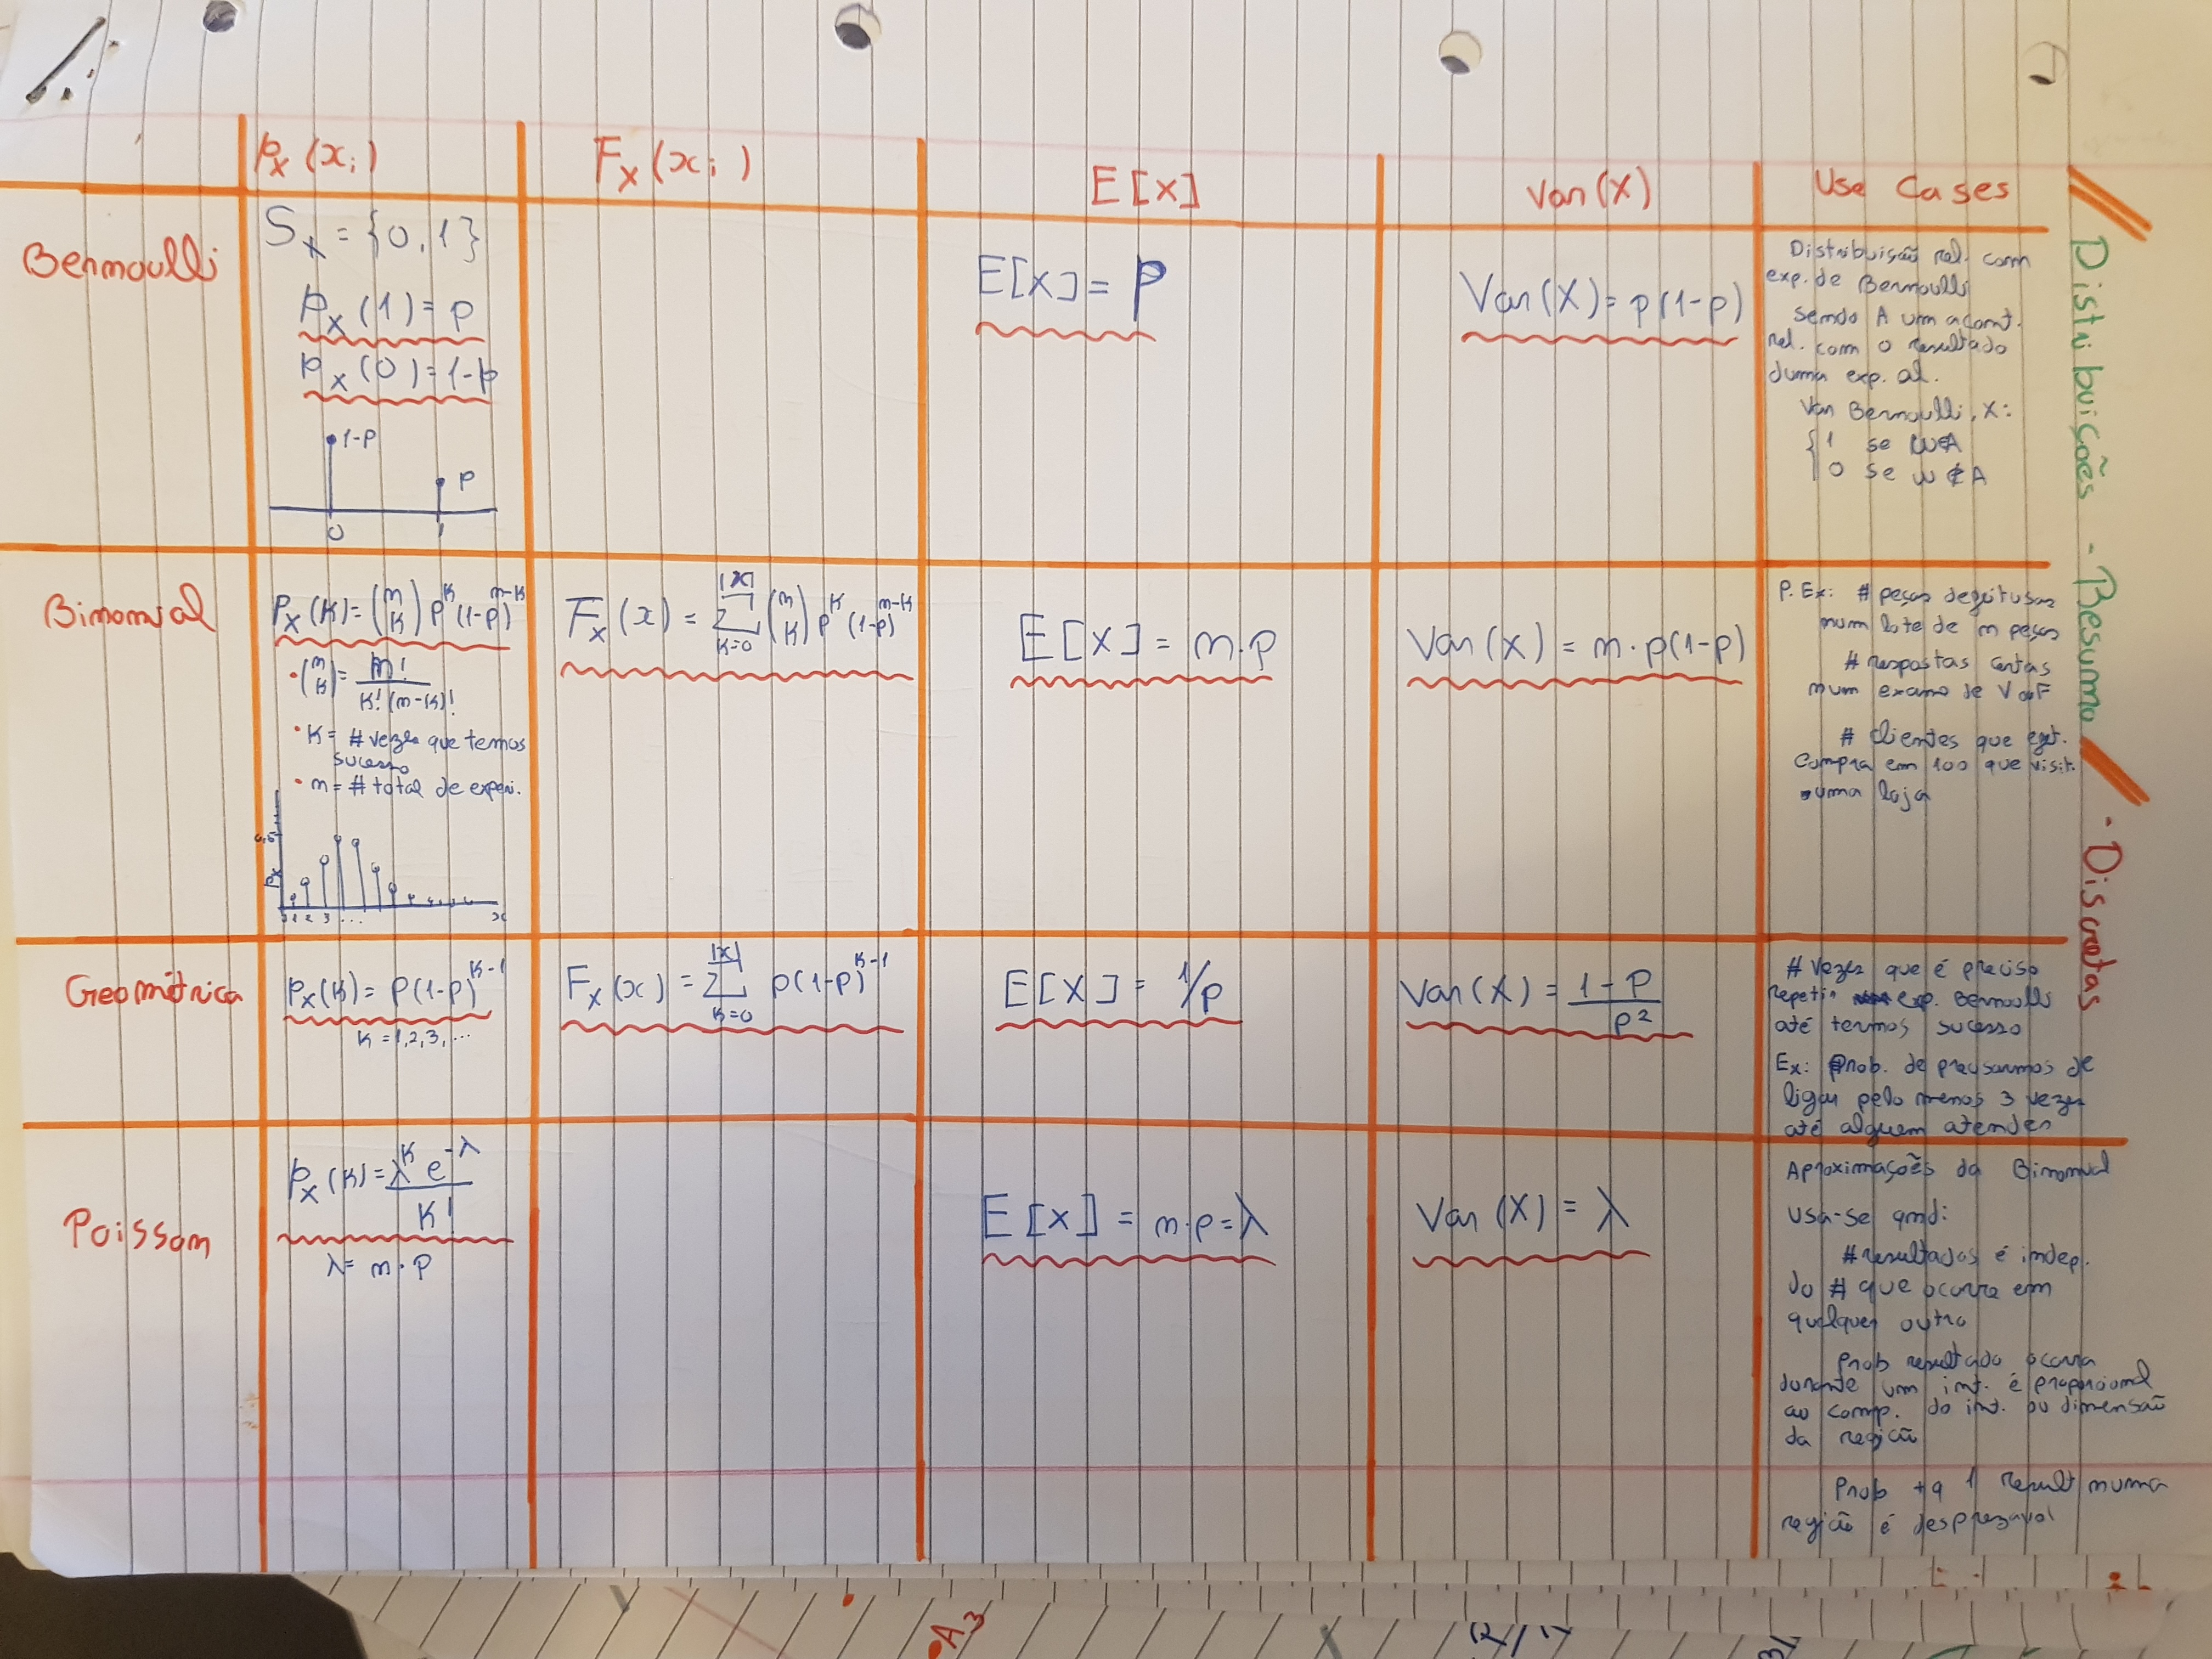 Distribuições - Resumo - Discretas
p_X(x_i)
F_X(x_i)
E[X]
Var(X)
Use Cases
Bernoulli
S_X = {0,1}
p_X(1) = p
p_X(0) = 1-p
1-p
p
0
1
E[X] = p
Var(X) = p(1-p)
Distribuisão rel. com
exp. de Bernoulli
sendo A um acont.
rel. com o resultado
duma exp. al.
Var Bernoulli, X:
{ 1 se ω∈A
0 se ω∉A
Binomial
P_X(K) = (n K) p^K (1-p)^{n-K}
• (n K) = n! / K!(n-K)!
• K = # vezes que temos
sucesso
• n = # total de experi.
p_X
1 2 3 ...
x
F_X(x) = Σ_{K=0}^{|x|} (n K) p^K (1-p)^{n-K}
E[X] = n·p
Var(X) = n·p(1-p)
P. Ex: # peças defeitusas
num lote de n peças
# respostas certas
num exame de V ou F
# clientes que
compra em 100 que visit.
uma loja
Geométrica
p_X(K) = p(1-p)^{K-1}
K = 1,2,3,...
F_X(x) = Σ_{K=0}^{|x|} p(1-p)^{K-1}
E[X] = 1/p
Var(X) = 1-p / p²
# vezes que é preciso
repetir exp. Bernoulli
até termos sucesso
Ex: Prob. de precisarmos de
ligar pelo menos 3 vezes
até alguem atender
Poisson
p_X(K) = λ^K e^{-λ} / K!
λ = n·p
E[X] = n·p = λ
Var(X) = λ
Aproximações da Binomial
Usa-se qnd:
# resultados é indep.
do # que ocorre em
qualquer outro
Prob resultado ocorra
durante um int. é proporcional
ao comp. do int. ou dimensão
da região
Prob +q 1 result numa
região é desprezavol
A3